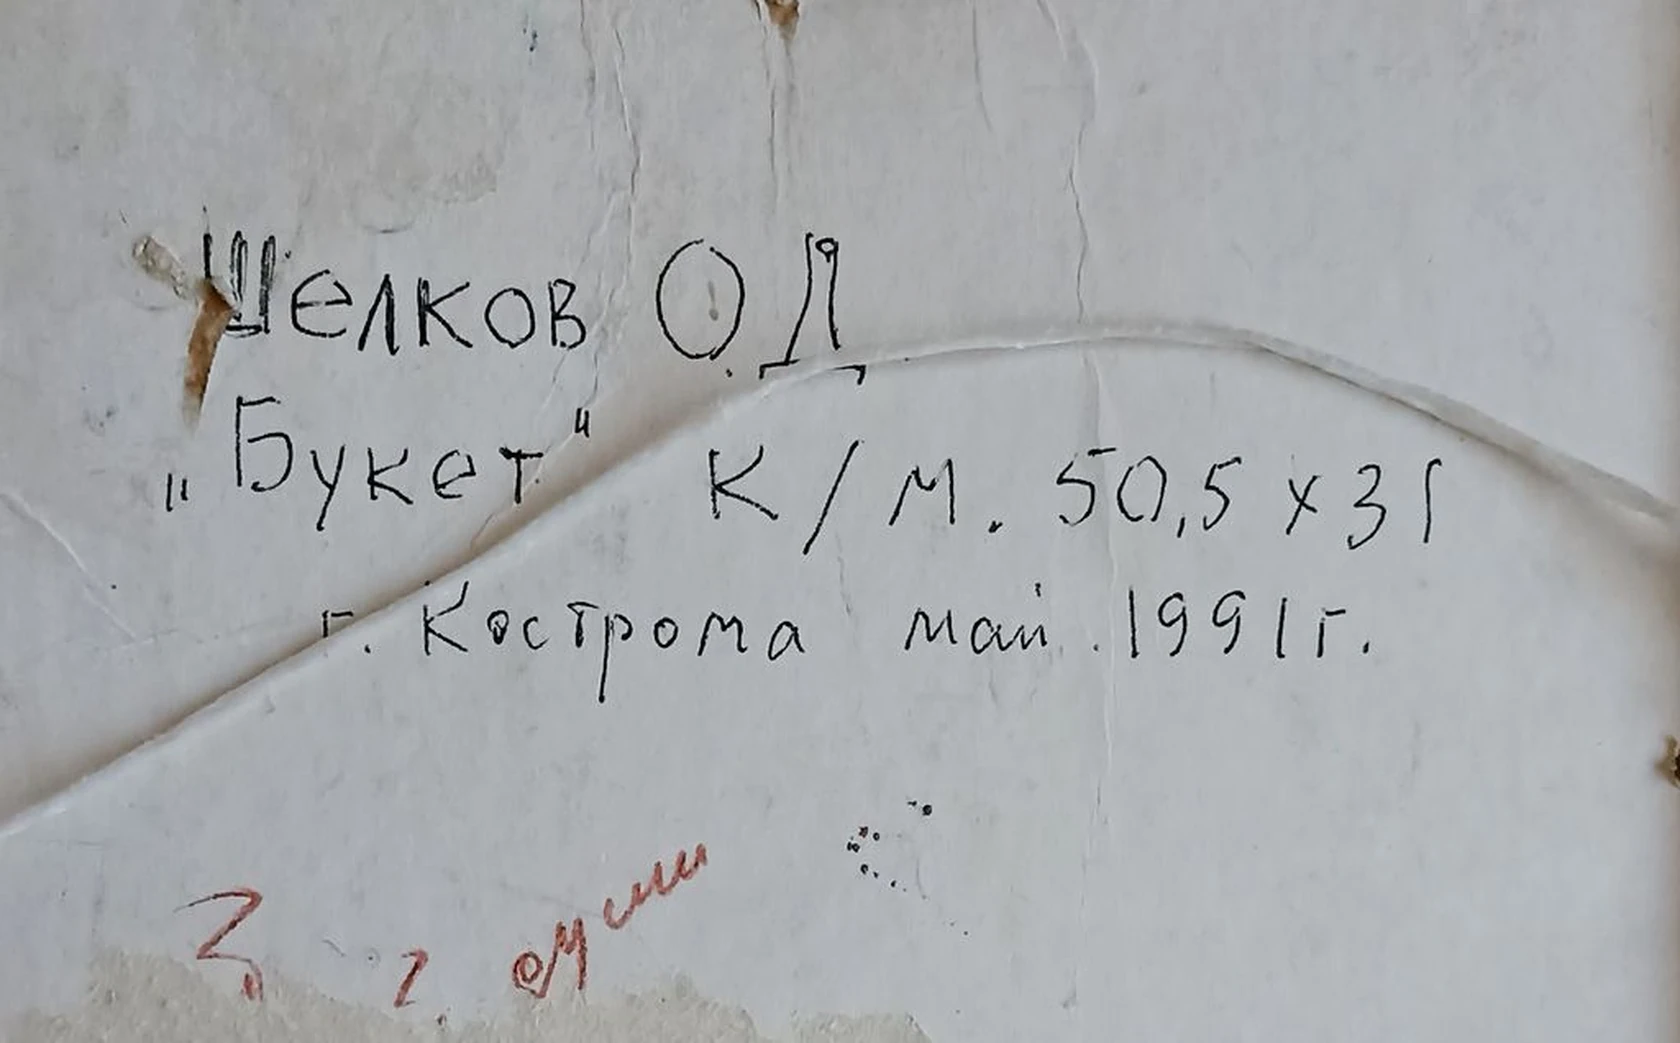 Шелков О Д
„Букет" К/М. 50,5 х 31
г. Кострома май 1991г.